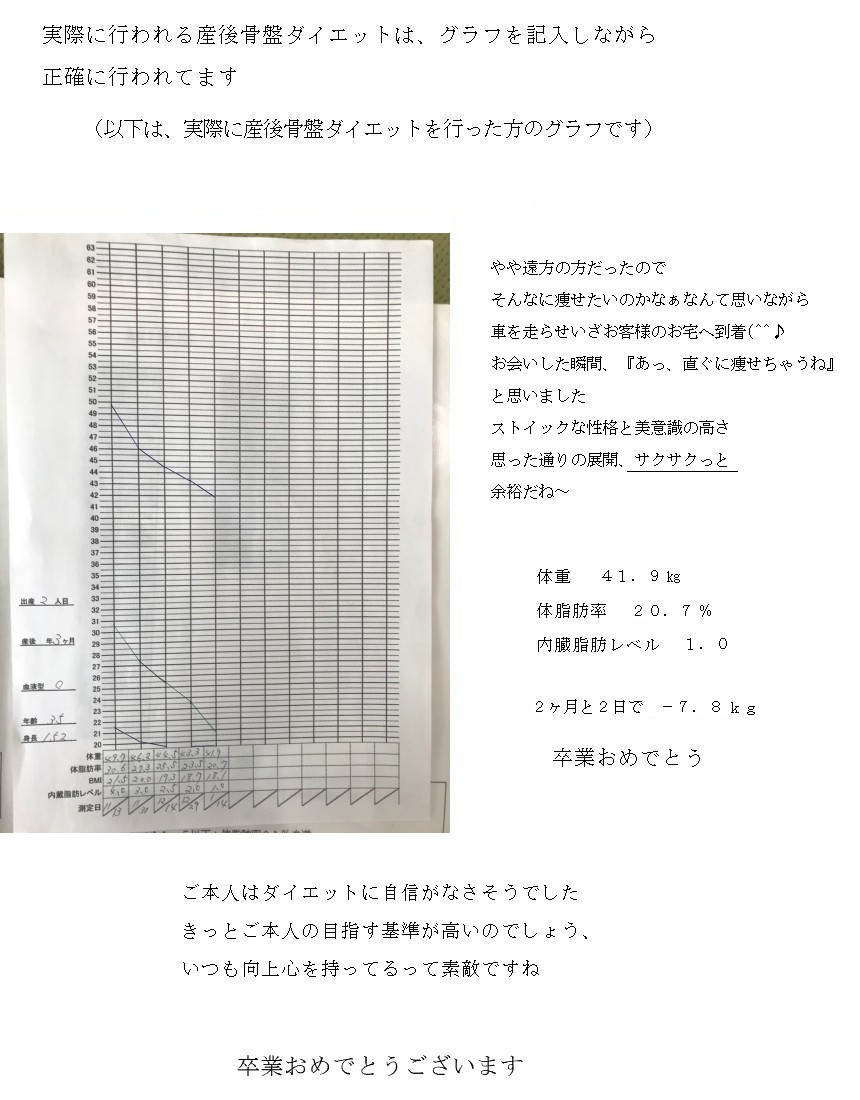 実際に行われる産後骨盤ダイエットは、グラフを記入しながら
正確に行われてます
（以下は、実際に産後骨盤ダイエットを行った方のグラフです）
63
62
61
60
59
58
57
56
55
54
53
52
51
50
49
48
47
46
45
44
43
42
41
40
39
38
37
36
35
34
33
32
31
30
29
28
27
26
25
24
23
22
21
20
出産 2 人目
産後 年 3ヶ月
血液型 O
年齢 35
身長 152
体重 49.7 46.2 44.5 43.3 41.9
体脂肪率 30.6 27.3 25.5 23.5 20.7
BMI 21.5 20.0 19.3 18.7 18.1
内臓脂肪レベル 4.0 3.0 2.5 2.0 1.0
測定日 11/13 11/30 12/14 12/29 1/14
やや遠方の方だったので
そんなに痩せたいのかなぁなんて思いながら
車を走らせいざお客様のお宅へ到着(^^♪
お会いした瞬間、『あっ、直ぐに痩せちゃうね』
と思いました
ストイックな性格と美意識の高さ
思った通りの展開、サクサクっと
余裕だね～
体重　４１．９㎏
体脂肪率　２０．７％
内臓脂肪レベル　１．０
２ヶ月と２日で　－７．８ｋｇ
卒業おめでとう
ご本人はダイエットに自信がなさそうでした
きっとご本人の目指す基準が高いのでしょう、
いつも向上心を持ってるって素敵ですね
卒業おめでとうございます